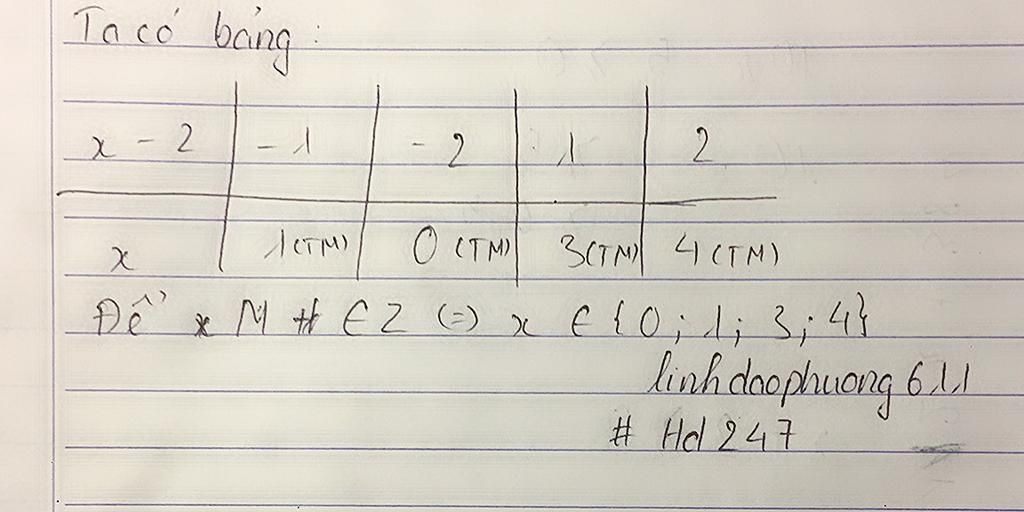 Ta có bảng:
x - 2 | -1 | -2 | 1 | 2
x | 1 (TM) | 0 (TM) | 3 (TM) | 4 (TM)
Để M ∈ Z (=) x ∈ {0; 1; 3; 4}
linhdaophuong 611
# Hd 247